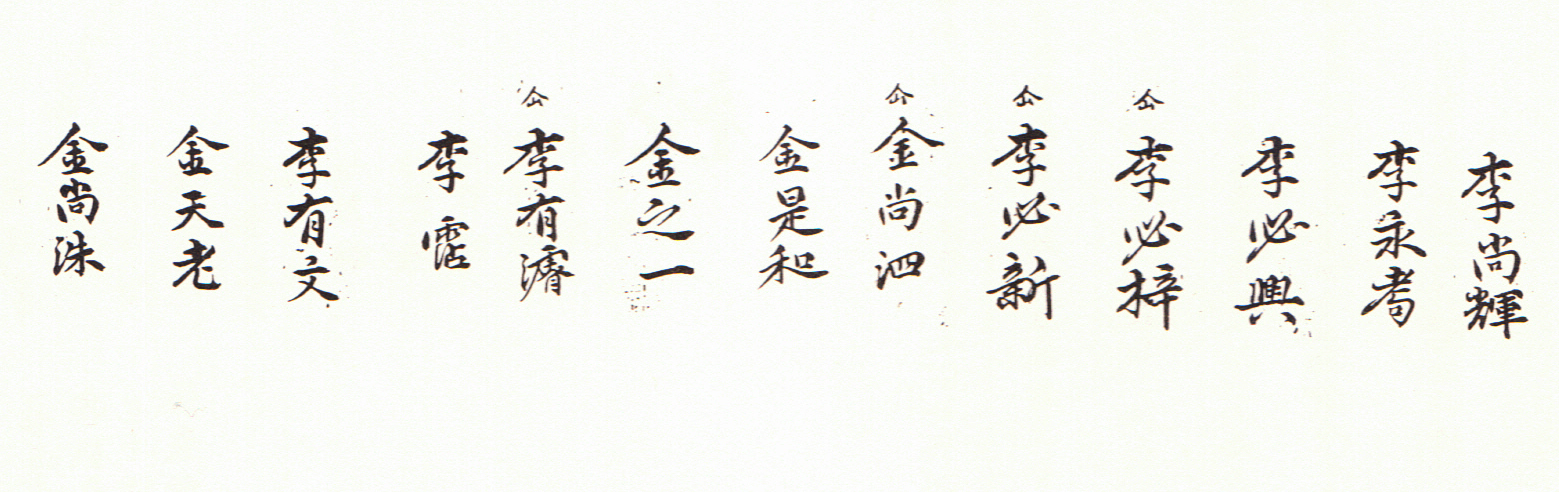 李尚輝
李永耈
李必興
仚李必梓
仚李必新
仚金尚泗
金是和
金之一
仚李有濬
李霑
李有文
金天老
金尚洙